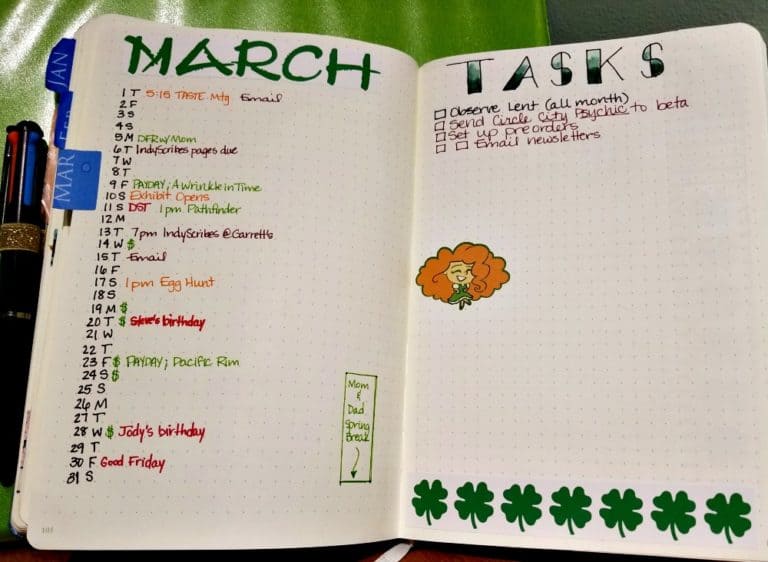 JAN
FEB
MAR
MARCH
1 T 5:15 TASTE Mtg Email
2 F
3 S
4 S
5 M DFRW/Mom
6 T IndyScribes pages due
7 W
8 T
9 F PAYDAY; A Wrinkle in Time
10 S Exhibit Opens
11 S DST 1pm Pathfinder
12 M
13 T 7pm IndyScribes @Garrett's
14 W $
15 T Email
16 F
17 S 1pm Egg Hunt
18 S
19 M $
20 T $ Steve's birthday
21 W
22 T
23 F $ PAYDAY; Pacific Rim
24 S $
25 S
26 M
27 T
28 W $ Jody's birthday
29 T
30 F Good Friday
31 S
Mom
&
Dad
Spring
Break
TASKS
Observe Lent (all month)
Send Circle City Psychic to beta
Set up preorders
Email newsletters